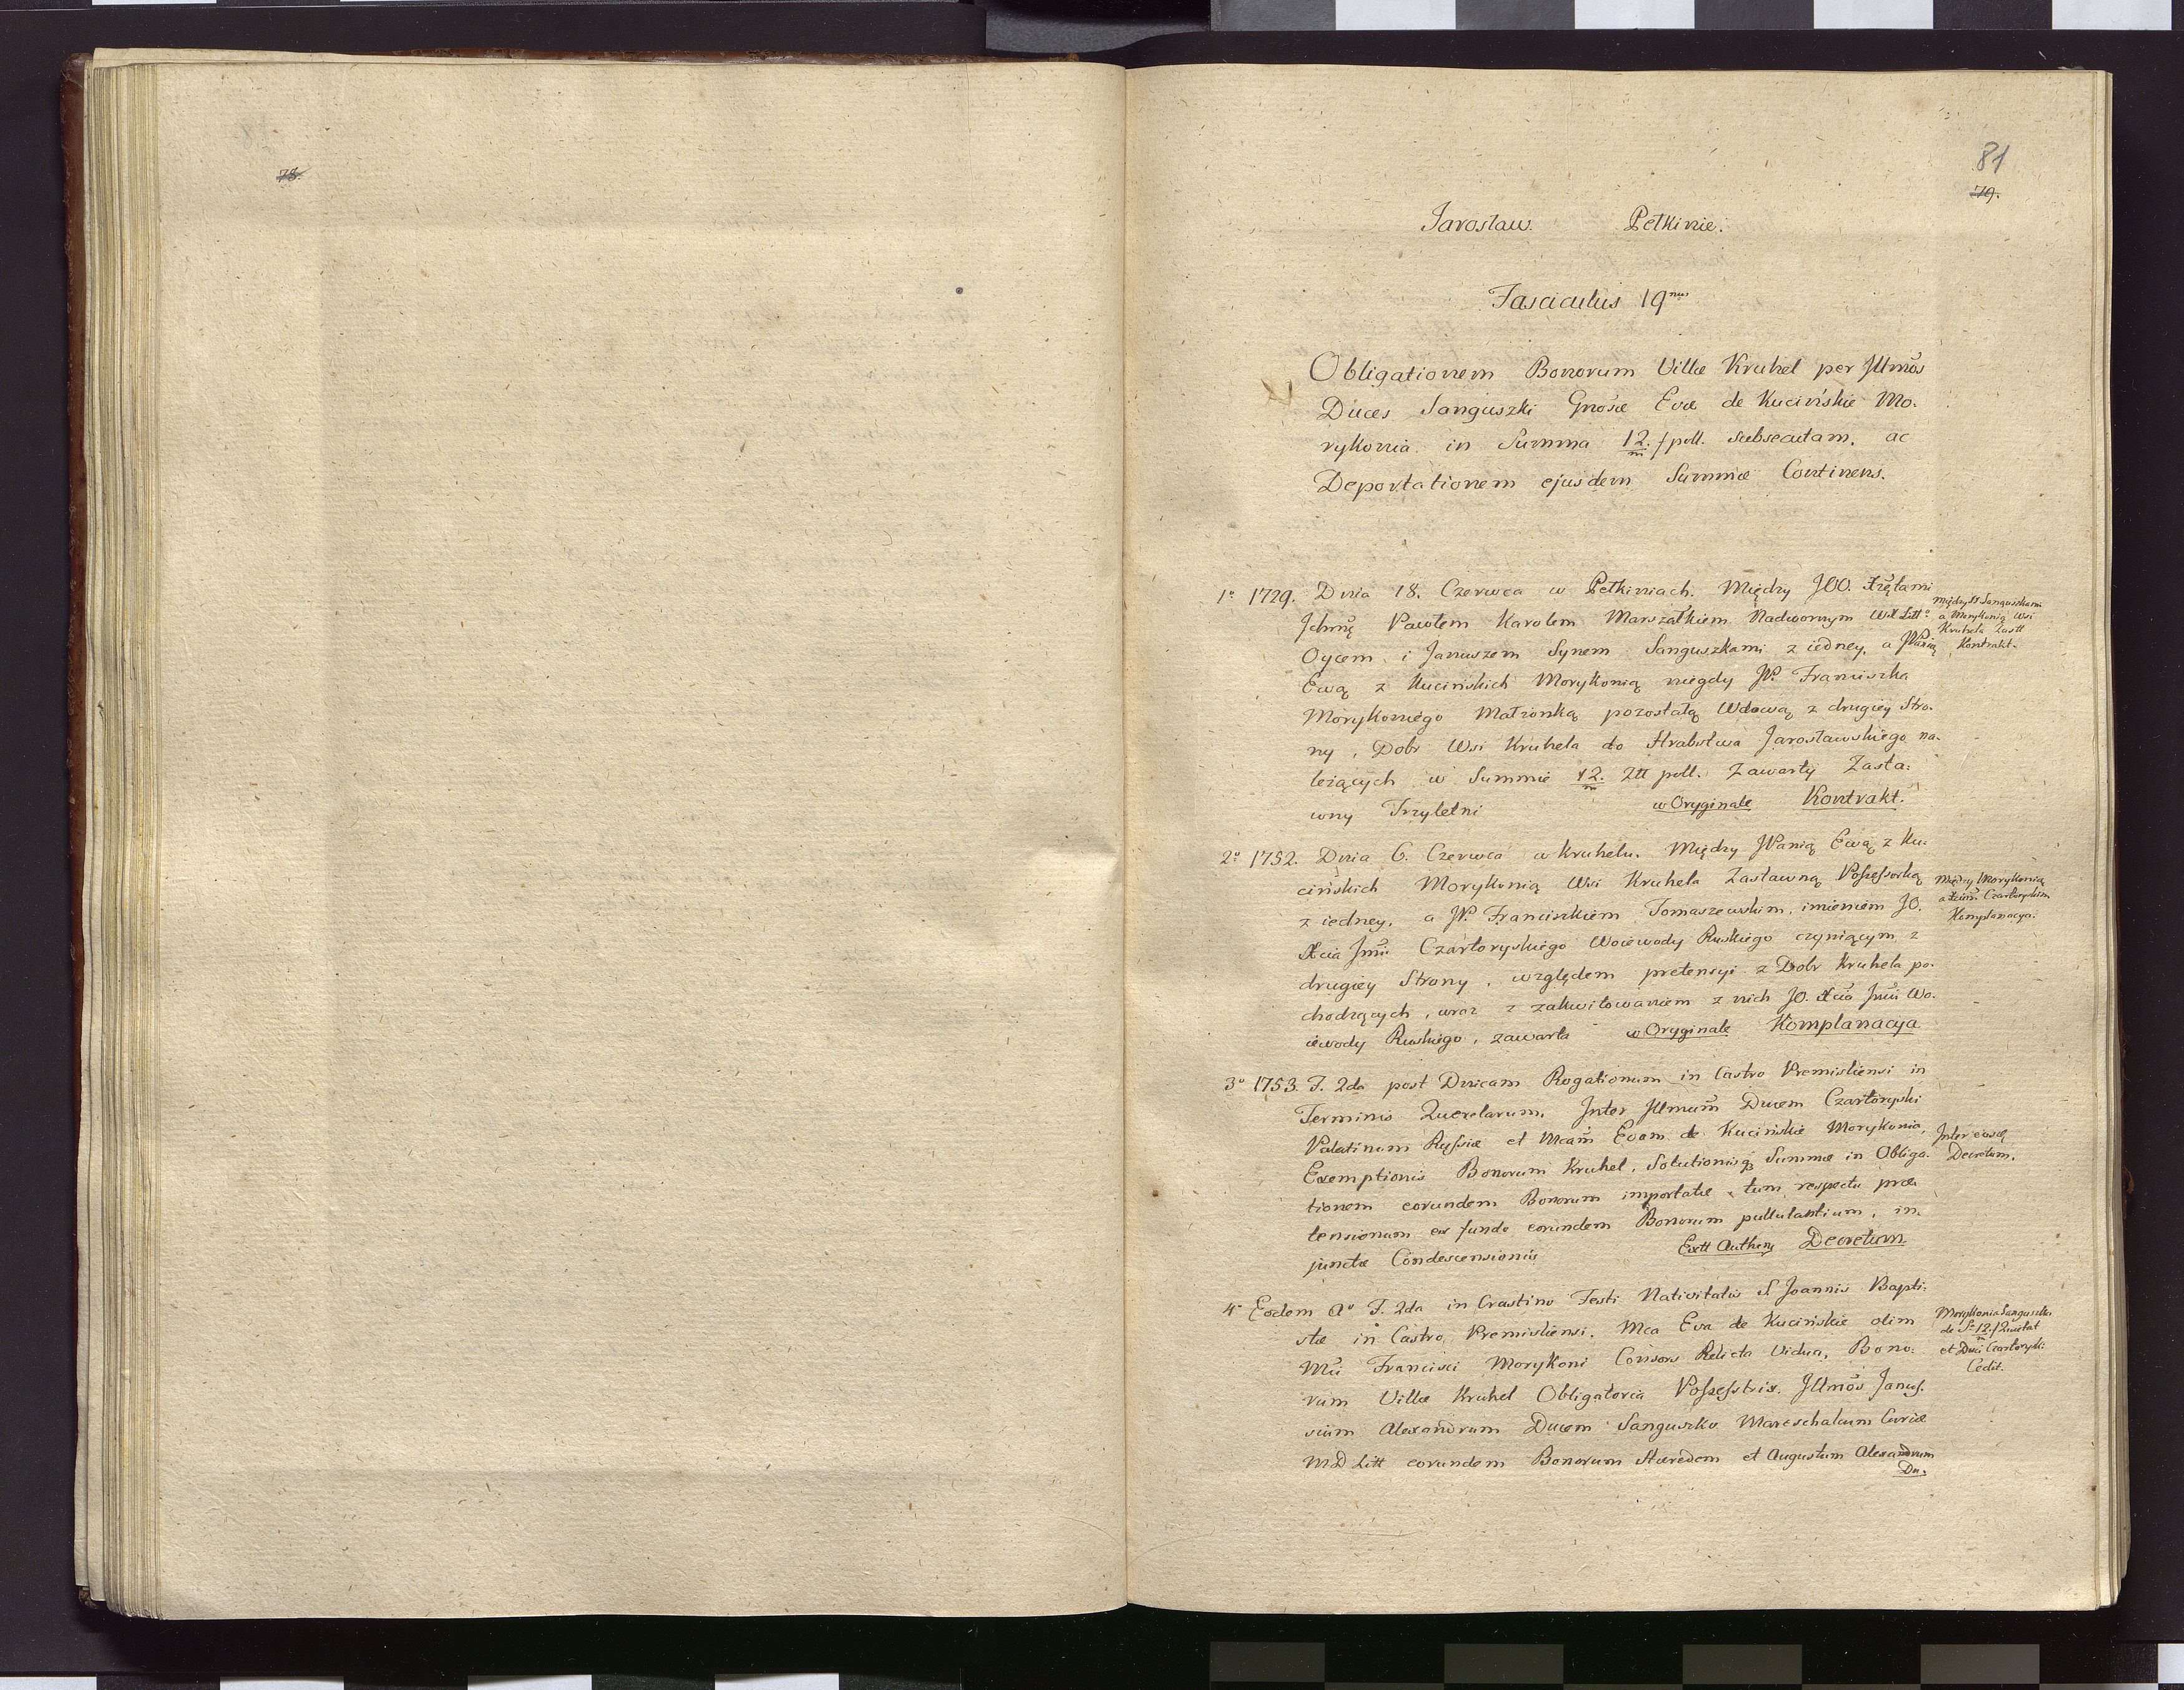 78.
81
79.
Jarosław. Pełkinie.
Fasciculus 19nus
Obligationem Bonorum Villæ Kruhel per Jllmõs
Duces Sanguszki Gnosæ Evæ de Kucińskie Mo-
rykonia in Summa 12/m f poll. subsecutam, ac
Deportationem ejusdem Summæ Continens.
1º 1729. Dnia 18. Czerwca w Pełkiniach. Między JOO. Xżętami
Jchmć Pawłem Karolem Marszałkiem Nadwornym WX Litt
Oycem i Januszem Synem Sanguszkami z iedney, a JPanią
Ewą z Kucińskich Morykonią niegdy JP. Franciszka
Morykoniego Małżonką pozostałą Wdową z drugiey Stro-
ny, Dobr Wsi Kruhela do Hrabstwa Jarosławskiego na-
leżących w Summie 12/m Ztt poll. Zawarty Zasta-
wny Trzyletni w Oryginale Kontrakt.
Między XX Sanguszkami
a Morykonią Wsi
Kruhela Zastt
Kontrakt.
2º 1752. Dnia 6. Czerwca w Kruhelu. Między JPanią Ewą z Ku-
cińskich Morykonią Wsi Kruhela Zastawną Possessorką
z iedney, a JP. Franciszkiem Tomaszewskim, imieniem JO.
Xcia Jmci Czartoryskiego Woiewody Ruskiego czyniącym z
drugiey Strony, względem pretensyi z Dobr Kruhela po-
chodzących, wraz z zakwitowaniem z nich JO. Xcia Jmci Wo-
iewody Ruskiego, zawarta w Oryginale Komplanacya
Między Morykonią
a Xciem Czartoryskim
Komplanacya.
3º 1753. F. 2da post Dnicam Rogationum in Castro Premisliensi in
Terminis Querelarum. Jnter Jllmum Ducem Czartoryski
Palatinum Russiæ et Mcam Evam de Kucińskie Morykonia,
Exemptionis Bonorum Kruhel, Solutionisq Summæ in Obliga-
tionem eorundem Bonorum importatæ, tum respectu præ-
tensionum ex fundo eorundem Bonorum pullulantium, in-
junctæ Condescensionis Extt Authen Decretum
Jnter eosd
Decretum.
4º Eodem Aº F. 2da in Crastino Festi Nativitatis S Joannis Bapti-
stæ in Castro Premisliensi. Mca Eva de Kucińskie olim
Mci Francisci Morykoni Consors Relicta Vidua, Bono-
rum Villæ Kruhel Obligatoria Possestrix. Jllmos Janus-
sium Alexandrum Ducem Sanguszko Mareschalcum Curiæ
MD Litt eorundem Bonorum Hæredem et Augustum Alexandrum
Du-
Morykonia Sanguszko
de Sª 12/m f Quietat
et Duci Czartoryski
Cedit.